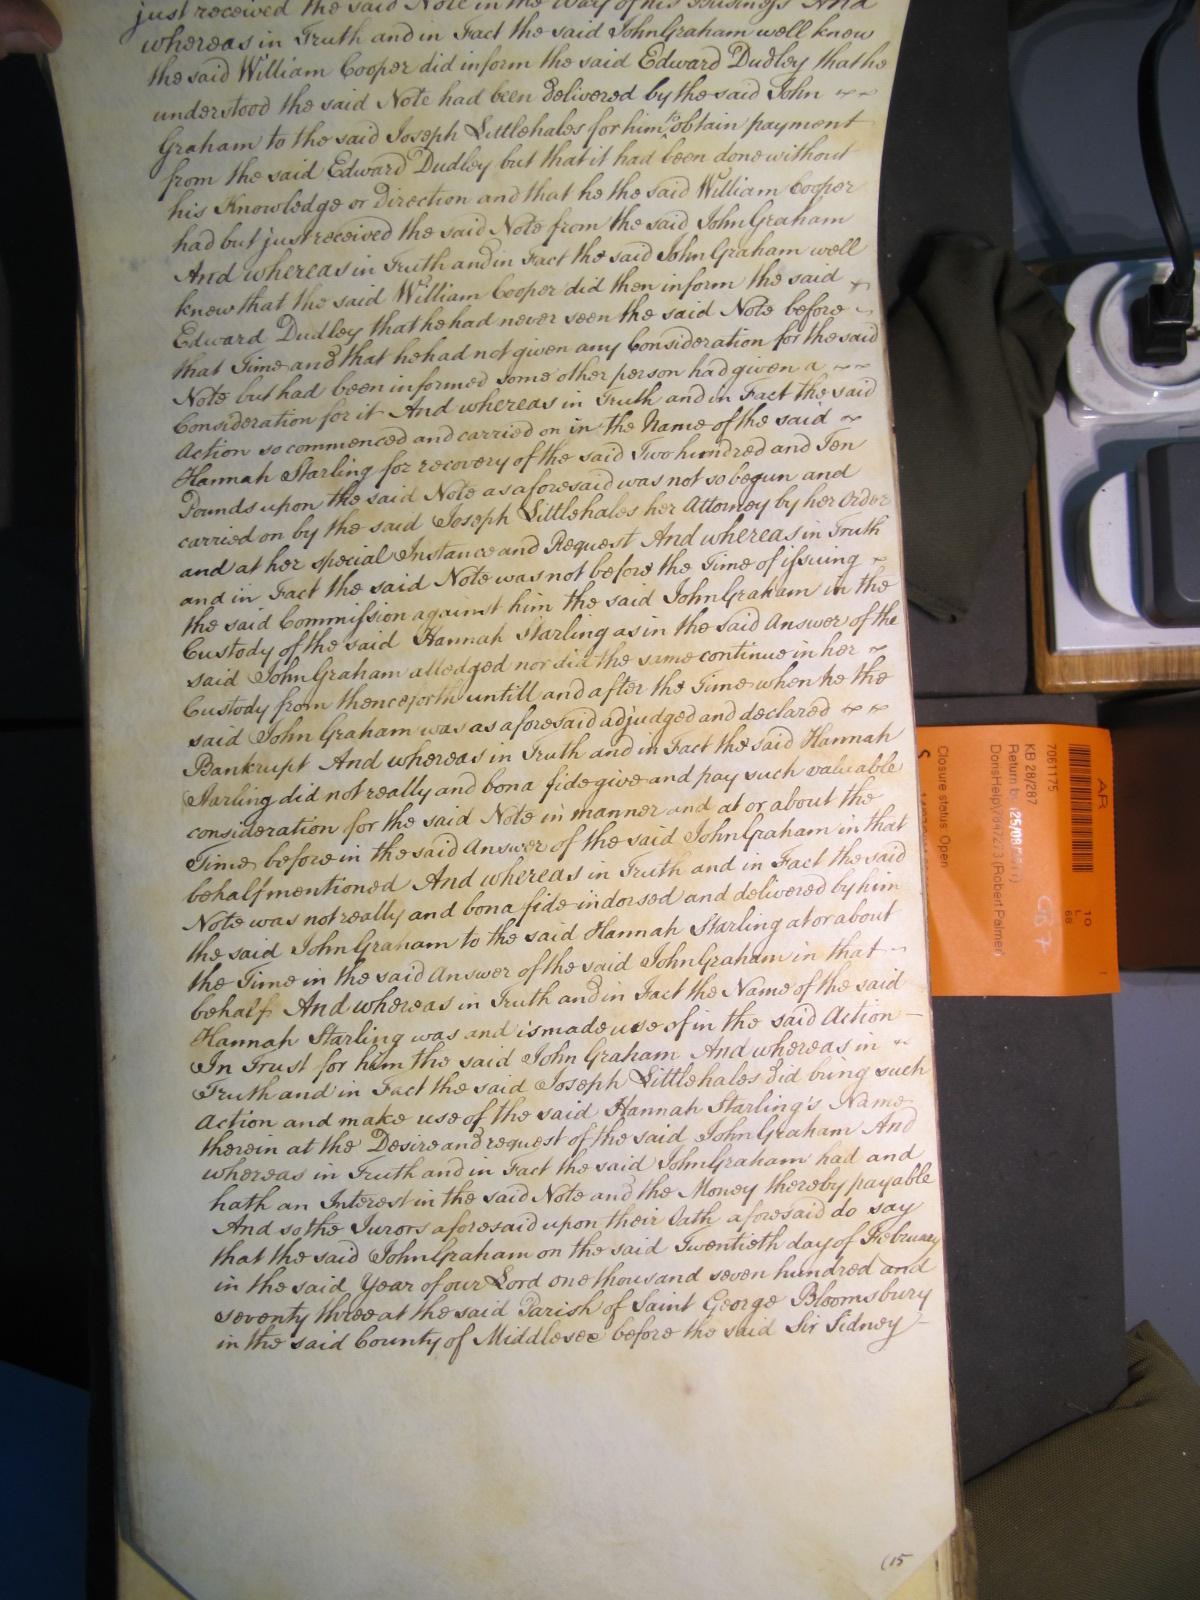 just received the said Note in the way of his Business And
whereas in Truth and in Fact the said John Graham well knew
the said William Cooper did inform the said Edward Dudley that he
understood the said Note had been delivered by the said John
Graham to the said Joseph Littlehales for him to obtain payment
from the said Edward Dudley but that it had been done without
his Knowledge or Direction and that he the said William Cooper
had but just received the said Note from the said John Graham
And whereas in Truth and in Fact the said John Graham well
knew that the said William Cooper did then inform the said
Edward Dudley that he had never seen the said Note before
that Time and that he had not given any Consideration for the said
Note but had been informed some other person had given a
Consideration for it And whereas in Truth and in Fact the said
Action so commenced and carried on in the Name of the said
Hannah Starling for recovery of the said Two hundred and Ten
Pounds upon the said Note as aforesaid was not so begun and
carried on by the said Joseph Littlehales her Attorney by her Order
and at her special Instance and Request And whereas in Truth
and in Fact the said Note was not before the Time of issuing
the said Commission against him the said John Graham in the
Custody of the said Hannah Starling as in the said Answer of the
said John Graham alledged nor did the same continue in her
Custody from thenceforth untill and after the Time when he the
said John Graham was as aforesaid adjudged and declared
Bankrupt And whereas in Truth and in Fact the said Hannah
Starling did not really and bona fide give and pay such valuable
consideration for the said Note in manner and at or about the
Time before in the said Answer of the said John Graham in that
behalf mentioned And whereas in Truth and in Fact the said
Note was not really and bona fide indorsed and delivered by him
the said John Graham to the said Hannah Starling at or about
the Time in the said Answer of the said John Graham in that
behalf And whereas in Truth and in Fact the Name of the said
Hannah Starling was and is made use of in the said Action
In Trust for him the said John Graham And whereas in
Truth and in Fact the said Joseph Littlehales did bring such
Action and make use of the said Hannah Starling's Name
therein at the Desire and request of the said John Graham And
whereas in Truth and in Fact the said John Graham had and
hath an Interest in the said Note and the Money thereby payable
And so the Jurors aforesaid upon their Oath aforesaid do say
that the said John Graham on the said Twentieth day of February
in the said Year of our Lord one thousand seven hundred and
seventy three at the said Parish of Saint George Bloomsbury
in the said County of Middlesex before the said Sir Sidney
(15
AR
7061175
KB 28/287
Return by (25/08/
DorisHelp7647273 (Robert Palmer)
Closure status Open
10
L
68